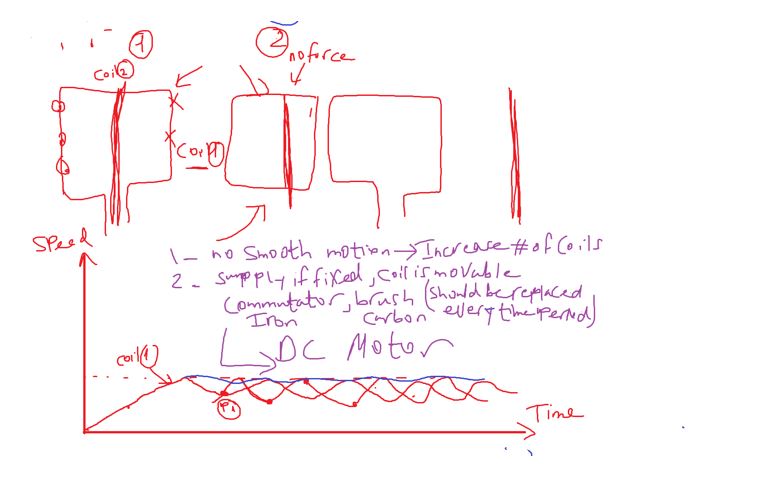 1
2
no force
Coil 2
Coil 1
Speed
1- no smooth motion → Increase # of Coils
2- supply, if fixed, coil is movable
Commutator, brush (should be replaced
Iron Carbon every time period)
DC Motor
coil 1
P1
Time